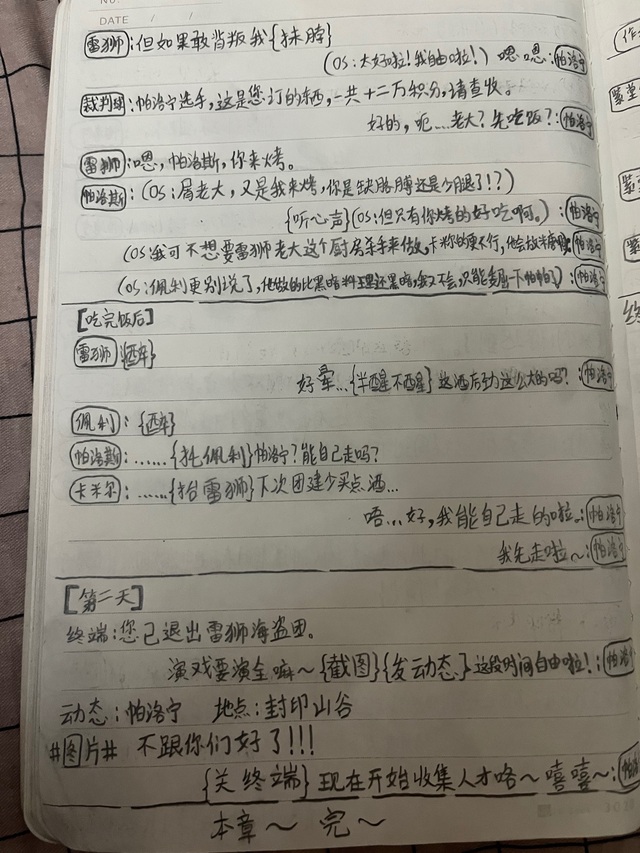 No.
DATE / /
雷狮:但如果敢背叛我{抹脖}
(OS:太好啦!我自由啦!)嗯嗯:帕洛宁
裁判球:帕洛宁选手,这是您订的东西,一共十二万积分,请查收。
好的,呃...老大?先吃饭?:帕洛宁
雷狮:嗯,帕洛斯,你来烤。
帕洛斯:(OS:屑老大,又是我来烤,你是缺胳膊还是少腿了!?)
{听心声}(OS:但只有你烤的好吃啊。):帕洛宁
(OS:我可不想要雷狮老大这个厨房杀手来做,卡米尔的更不行,他会放:帕洛宁
(OS:佩利更别说了,他做的比黑暗料理还黑暗,我又不会,只能委屈一下帕帕了):帕洛宁
[吃完饭后]
雷狮{酒醉}
好晕...{半醒不醒}这酒后劲这么大的吗?:帕洛宁
佩利:{酒醉}
帕洛斯:......{扛佩利}帕洛宁?能自己走吗?
卡米尔:......{抬雷狮}下次团建少买点酒...
唔...好,我能自己走的啦。:帕洛宁
我先走啦~:帕洛宁
[第二天]
终端:您已退出雷狮海盗团。
演戏要演全嘛~{截图}{发动态}这段时间自由啦!:帕洛宁
动态:帕洛宁 地点:封印山谷
#图片# 不跟你们好了!!!
{关终端}现在开始收集人才咯~嘻嘻~:帕
本章~完~